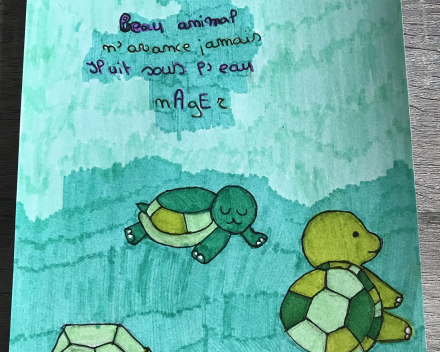 Beau animal
n'avance jamais
Il vit sous l'eau
nAgEr